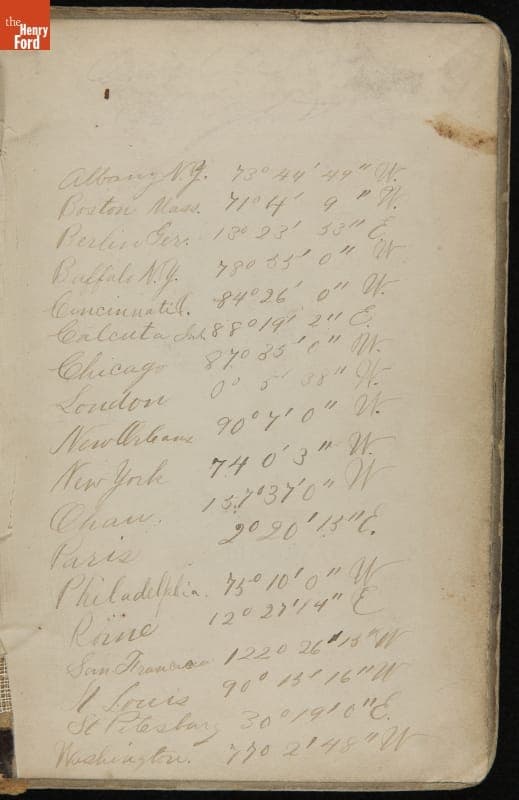 the
Henry
Ford
Albany N.Y. 73° 44' 49" W.
Boston Mass. 71° 4' 9" W.
Berlin Ger. 13° 23' 53" E.
Buffalo N.Y. 78° 55' 0" W
Cincinnati O. 84° 26' 0" W.
Calcuta Ind. 88° 19' 2" E.
Chicago 87° 35' 0" W.
London 0° 5' 38" W.
New Orleans 90° 7' 0" W.
New York 74° 0' 3" W.
157° 37' 0" W
Paris 2° 20' 15" E.
Philadelphia. 75° 10' 0" W
Rome 12° 27' 14" E
San Francisco 122° 26' 15" W
St Louis 90° 15' 16" W
St Petesburg 30° 19' 0" E.
Washington. 77° 2' 48" W